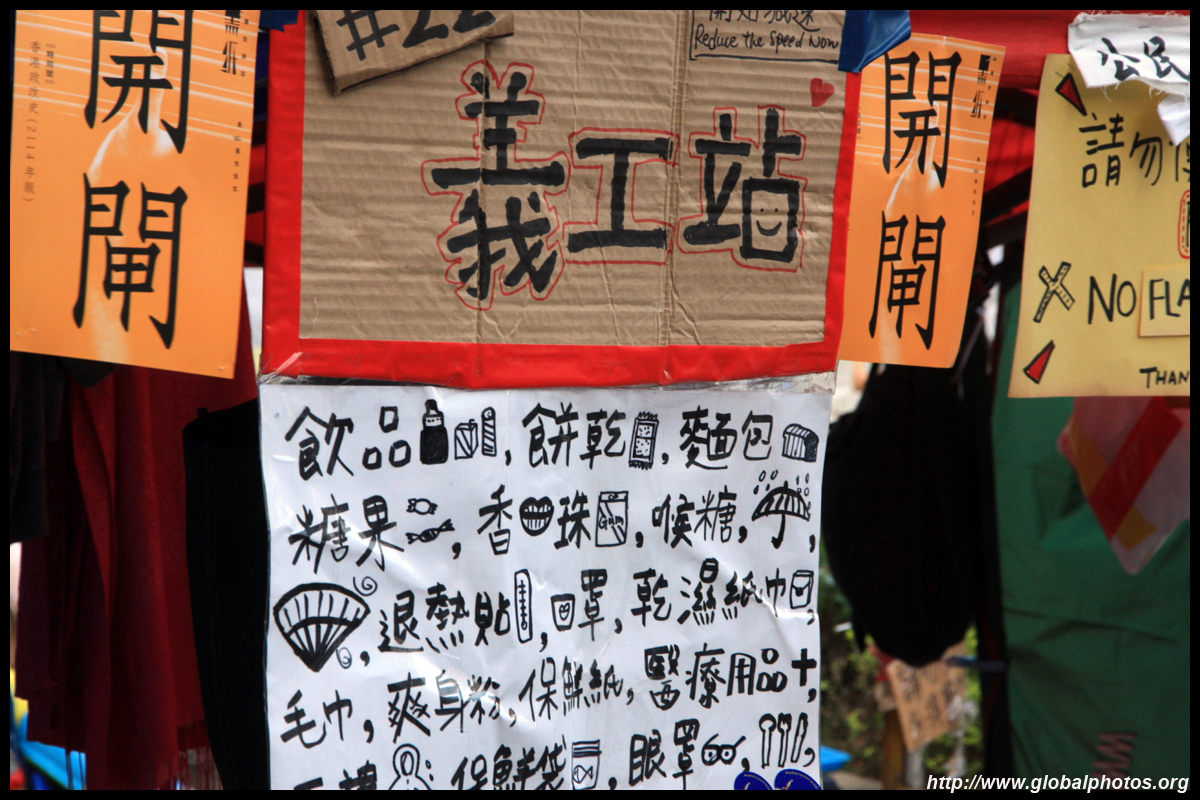 開
閘
香港政改史(2114年版)
#22
開始減速
Reduce the Speed Now
義工站
開
閘
公民
請勿
NO FLA
THAN
飲品, 餅乾, 麵包
糖果, 香珠, 喉糖, ,
, 退熱貼, 口罩, 乾濕紙巾,
毛巾, 爽身粉, 保鮮紙, 醫療用品+,
保鮮袋 眼罩 ,
http://www.globalphotos.org